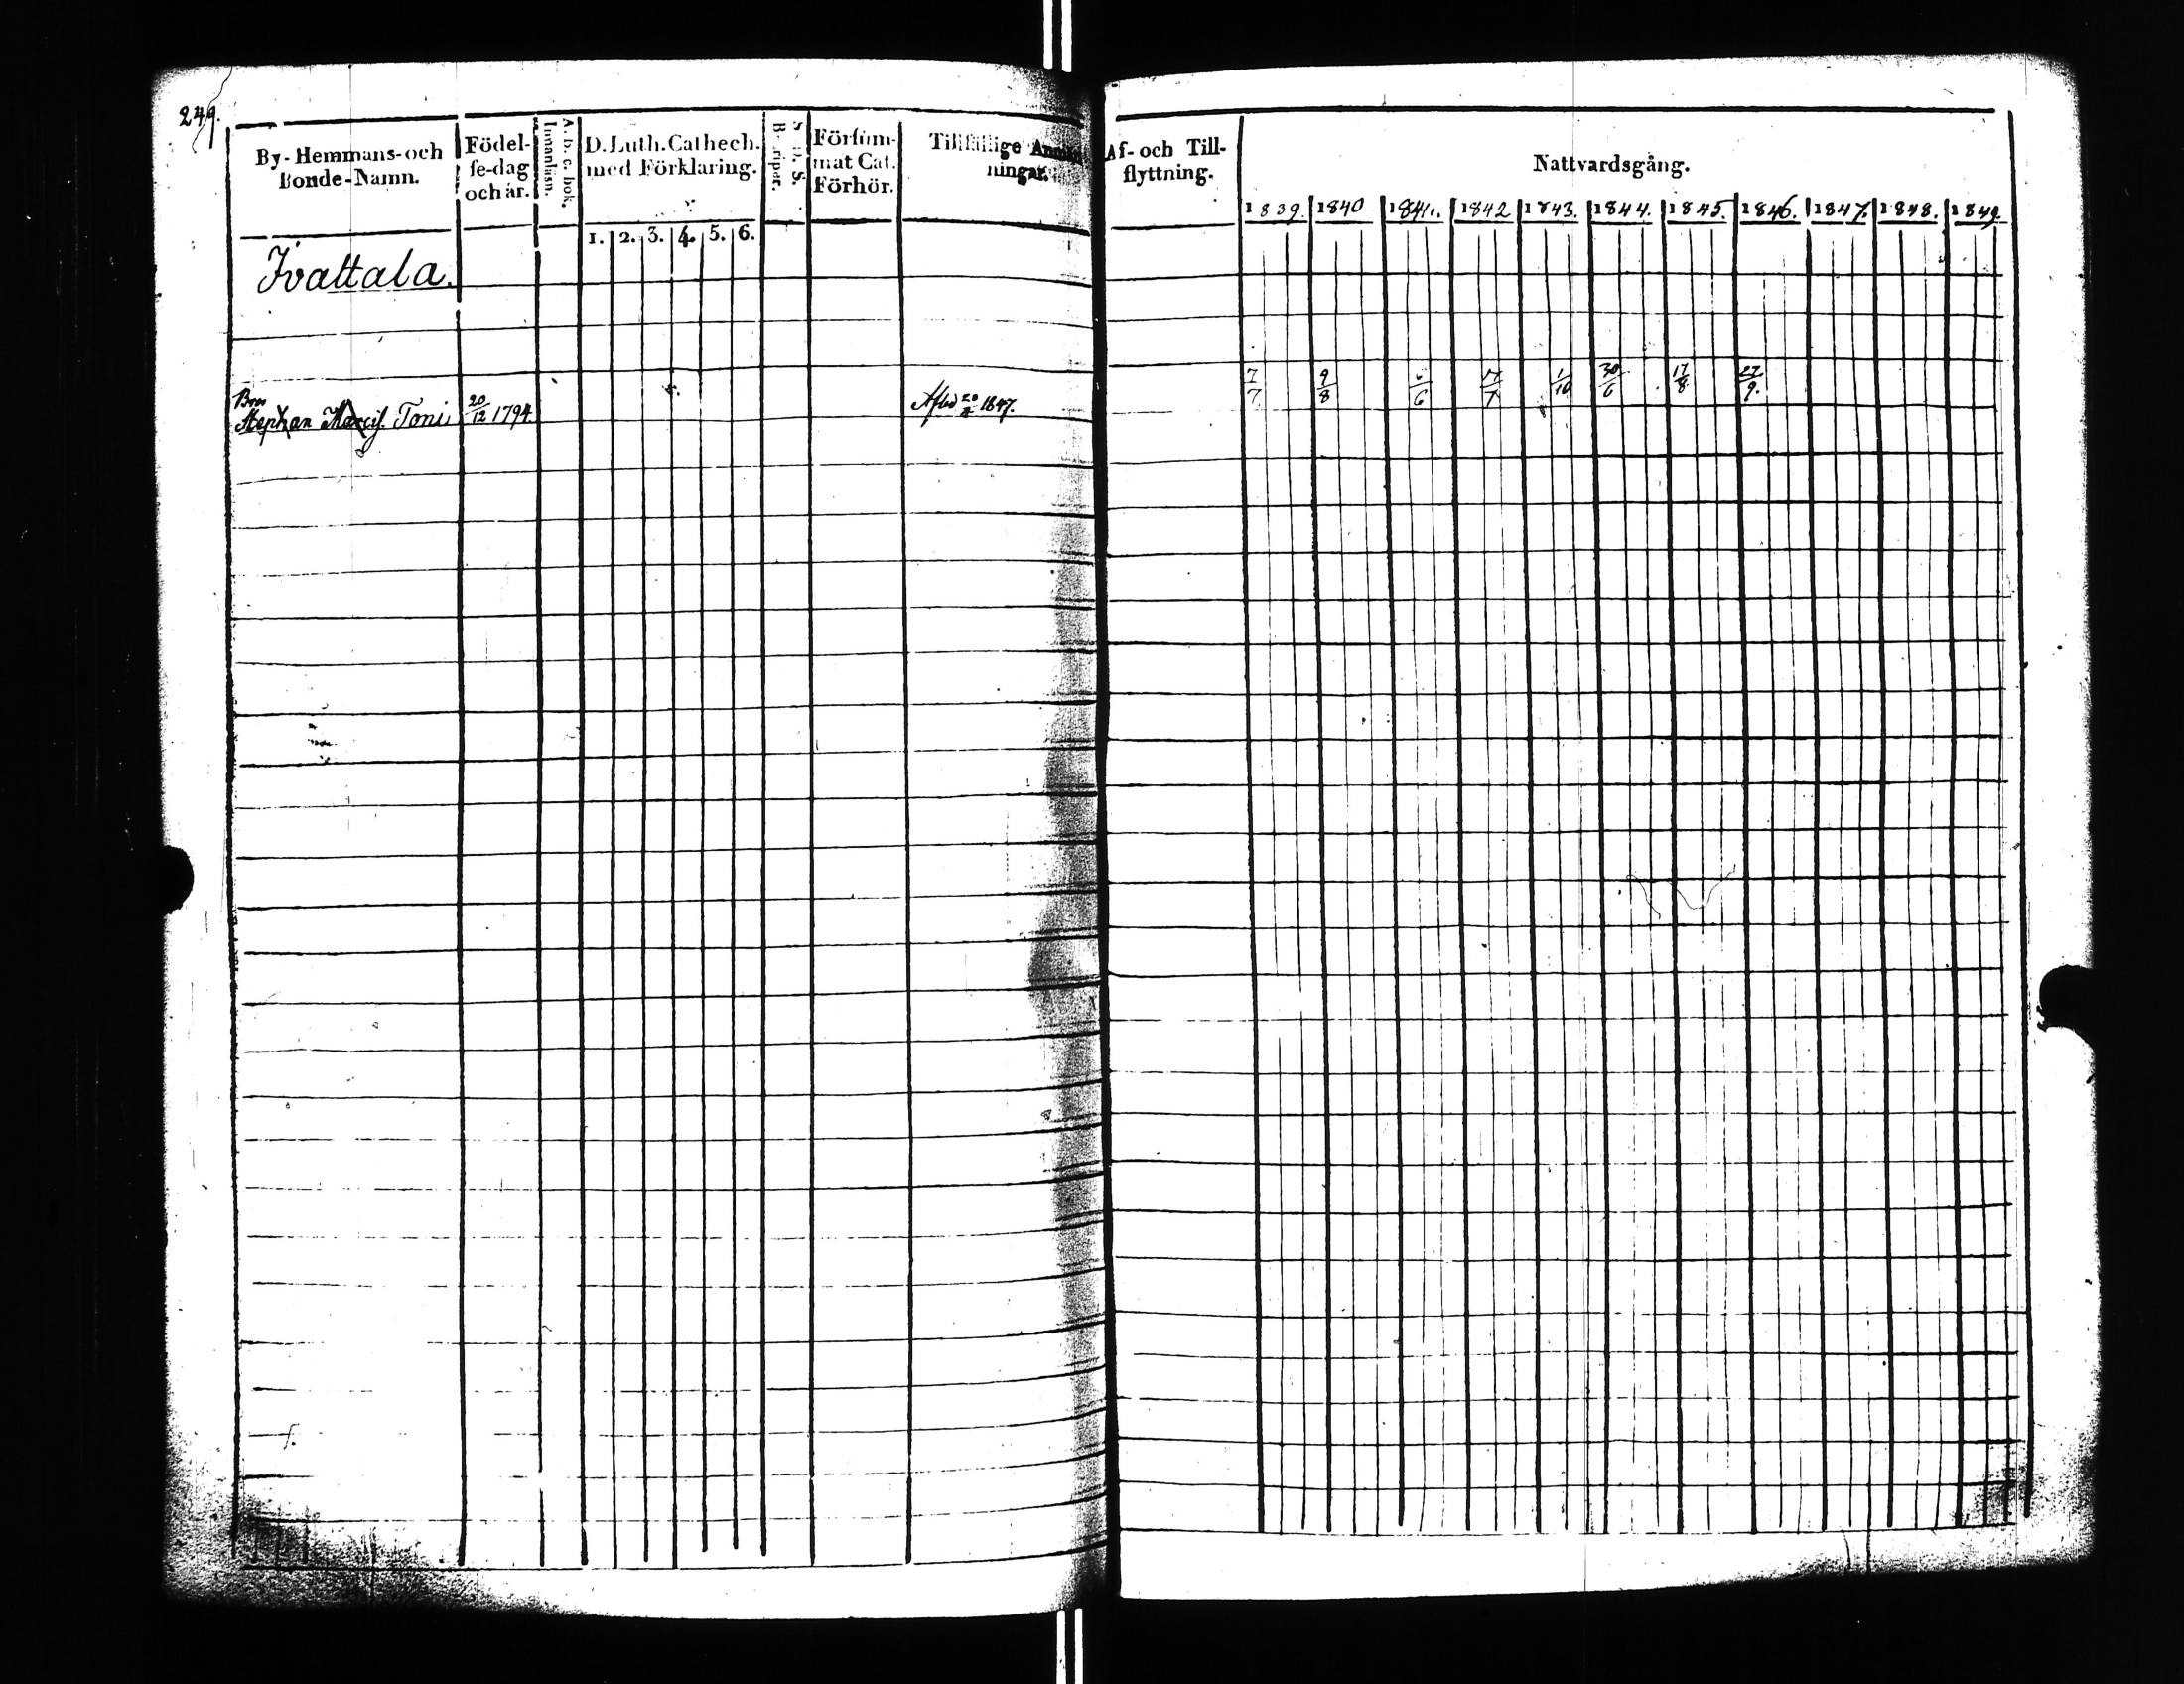 249.
By-Hemmans-och Bonde-Namn.
Födel-se-dag och år.
A. b. c. bok. Innanläsn.
D. Luth. Cathech. med Förklaring.
1. 2. 3. 4. 5. 6.
Försum-mat Cat. Förhör.
Tillfällige
ningar.
Af- och Till-flyttning.
Nattvardsgång.
1839. 1840 1841. 1842 1843. 1844. 1845. 1846. 1847. 1848. 1849.
Ivattala.
7/7 9/8 6/6 17/7 1/10 30/6 17/8 27/9.
Bon
Stephan Toni 20/12 1794. 1847.